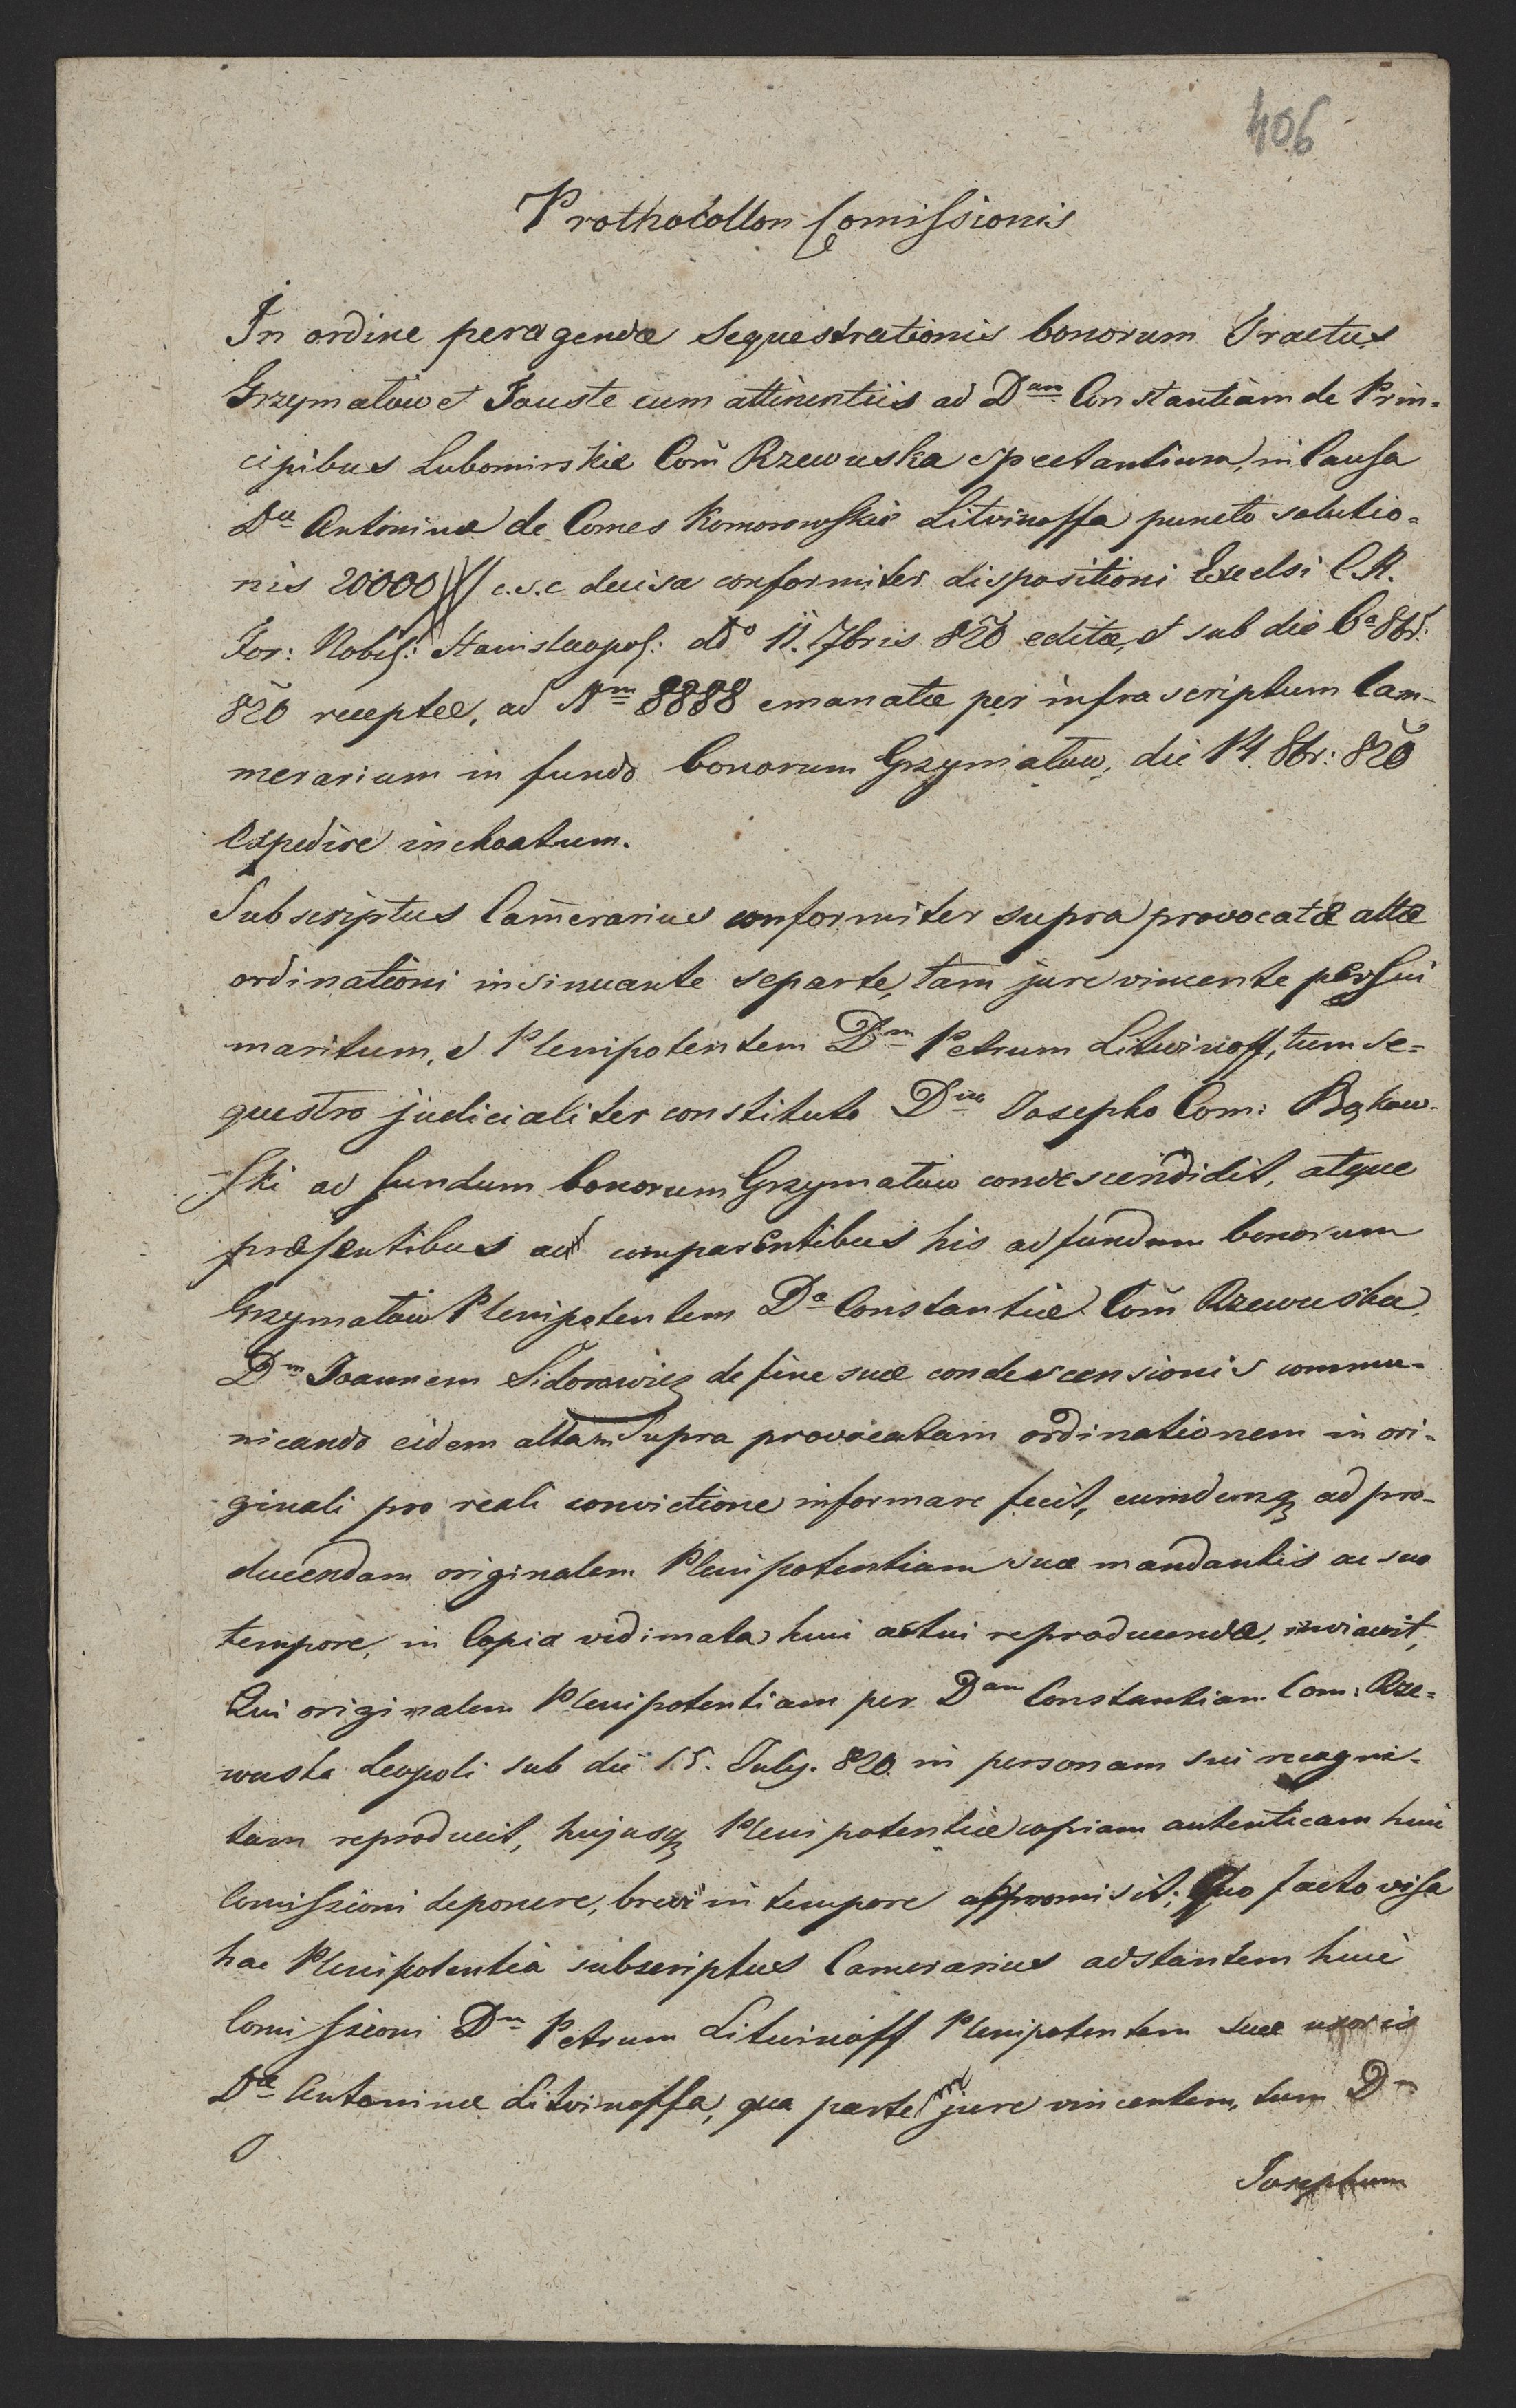 406
Prothocollon Comissionis
In ordine peragendæ Sequestrationis bonorum Tractus
Grzymałow et Touste cum attinentiis ad Dam Constantiam de Prin-
cipibus Lubomirskie Com̃ Rzewuska spectantium, in Causa
Dæ Antoninæ de Comes Komorowskie Litvinoffa puncto solutio-
nis 20000 c.s.c decisa conformiter dispositioni Excelsi C.R.
For: Nobil: Stanislaopol: ddo 11. 7bris 820 editæ, et sub die 6a 8br:
820 receptæ, ad Nm 8888 emanatæ per infra scriptum Cam-
merarium in fundo bonorum Grzymałow, die 14. 8br: 820
expedire inchoatum.
Subscriptus Cam̃erarius conformiter supra provocatæ altæ
ordinationi insinuante se parte, tam jure vincente per sui
maritum, et Plenipotentem Dm Petrum Litwinoff, tum se-
questro judicialiter constituto Dno Josepho Com: Bąkow-
ski ad fundum bonorum Grzymałow condescendidit, atque
præsentibus ac comparentibus his ad fundum bonorum
Grzymałow Plenipotentem Da Constantiæ Com̃ Rzewuska
Dm Joannem Sidorowicz de fine suæ condescensionis commu-
nicando eidem altam supra provocatam ordinationem in ori-
ginali pro reali convictione informare fecit, eumdemq ad pro-
ducendam originalem Plenipotentiam suæ mandantis ac suo
tempore, in Copia vidimata huic actui reproducendæ, inviavit,
Qui originalem Plenipotentiam per Dam Constantiam Com: Rze-
wuska Leopoli sub die 15. July. 820. in personam sui recogni-
tam reproducit, hujusq Plenipotentiæ copiam autenticam huic
Comissioni deponere, brevi in tempore appromisit; Quo facto visa
hac Plenipotentia subscriptus Camerarius adstantem huic
Comissioni Dm Petrum Litwinoff Plenipotentem suæ uxoris
Dæ Antoninæ Litvinoffa, qua partem jure vincentem, tum Dm
Josephum